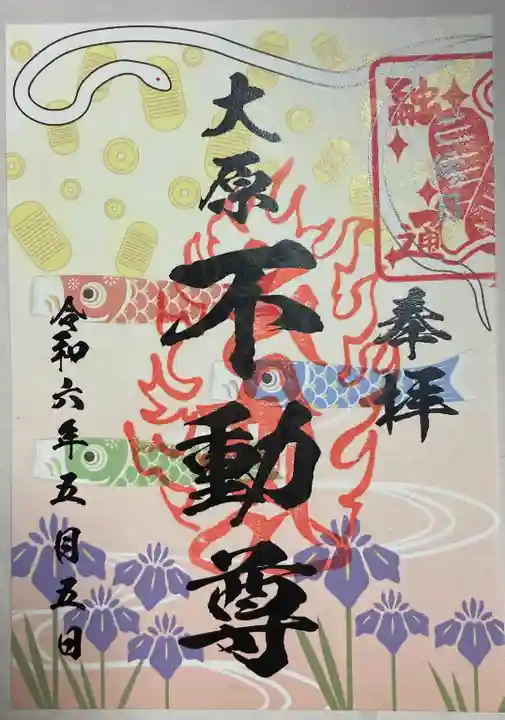 奉拝
大原
不動尊
令和六年五月五日
融通